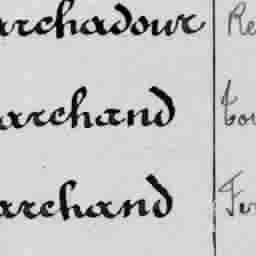 archadour Re
archand Tou
archand Fer